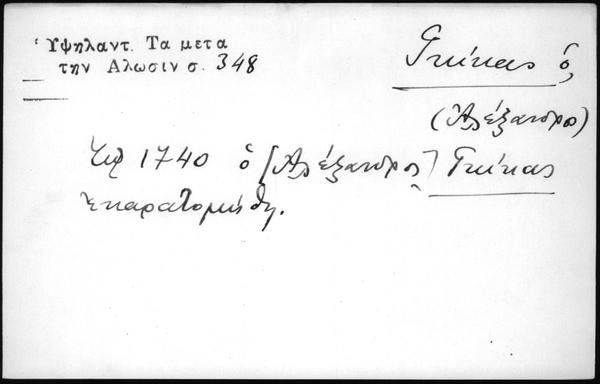 Ὑψηλαντ. Τα μετα
την Αλωσιν σ. 348
Γκίκας ὁ
(Ἀλέξανδρος)
1740 ὁ (Ἀλέξανδρος) Γκίκας
ἐκαρατομήθη.